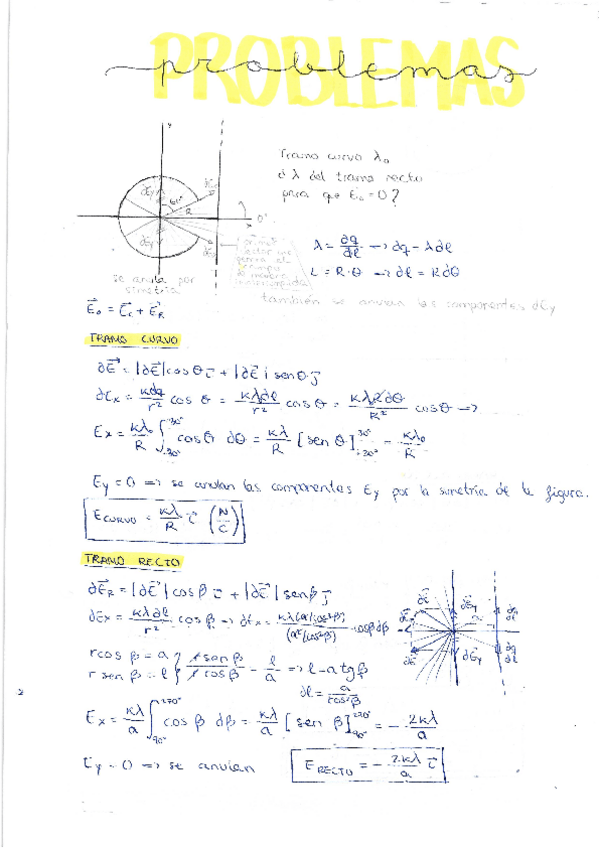 PROBLEMAS
problemas
y
Tramo curvo λ₀
¿ λ del tramo recto
para que E₀ = 0?
60°
R
O'
dEy
dEy
λ = dq/dl → dq = λdl
L = R·θ → dl = Rdθ
se anula por
simetría
también se anulan las componentes dEy
E⃗₀ = E⃗c + E⃗R
TRAMO CURVO
dE⃗ = |dE⃗| cos θ i⃗ + |dE⃗| sen θ j⃗
dEx = kdq/r² cos θ = kλdl/r² cos θ = kλRdθ/R² cos θ →
Ex = kλ₀/R ∫₋₃₀°^30° cos θ dθ = kλ/R [sen θ]₋₃₀°^30° = kλ₀/R
Ey = 0 ⇒ se anulan las componentes Ey por la simetría de la figura.
E CURVO = kλ/R i⃗ (N/C)
TRAMO RECTO
dE⃗R = |dE⃗| cos β i⃗ + |dE⃗| sen β j⃗
dEx = kλdl/r² cos β → dEx = kλ(a/cos²β)/(a²/cos²β) cosβ dβ
r cos β = a
r sen β = l } r sen β/r cos β = l/a ⇒ l = a tg β
dl = a/cos²β
Ex = kλ/a ∫₉₀°^270° cos β dβ = kλ/a [sen β]₉₀°^270° = - 2kλ/a
Ey = 0 ⇒ se anulan
E RECTO = - 2kλ/a i⃗
dE⃗
dEy
dE⃗
dEy
dq
dl